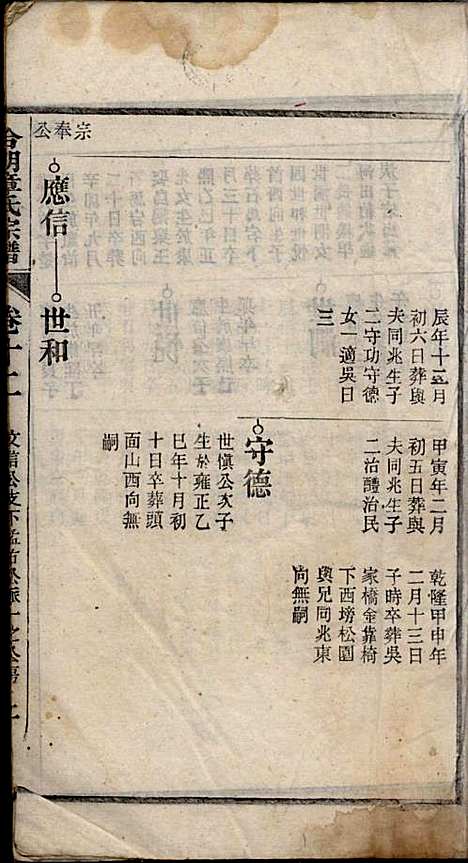 辰年十二月
初六日葬與
夫同兆生子
二守功守德
女一適吳日
三
甲寅年二月
初五日葬與
夫同兆生子
二治醴治民
乾隆甲申年
二月十三日
子時卒葬吳
家橋金靠椅
下西塝松園
與兄同兆東
向無嗣
守德
世愼公次子
生於雍正乙
巳年十月初
十日卒葬頭
面山西向無
嗣
宗奉公
應信
世和
童氏宗譜
卷十二